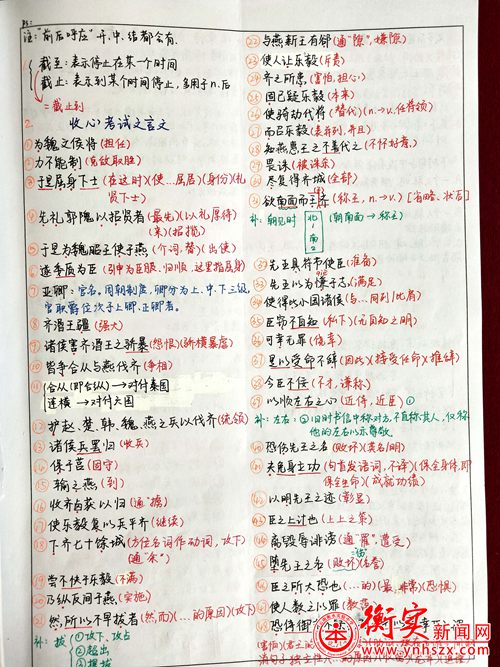 注："前后呼应"开、中、结都会有.
截至：表示停止在某一个时间
截止：表示到某个时间停止，多用于n.后
=截止到
2.
收心考试文言文
①为魏文侯将(担任)
②力不能制(克敌取胜)
③于是屈身下士(在这时)(使…屈居)(身份)(礼
贤下士)
④先礼郭隗以招贤者(最先)(以礼厚待)
来)(招揽)
⑤于是为魏昭王使于燕(介词，替)(出使)
⑥遂委质为臣
⑦亚卿：官名。周朝制度，卿分为上、中、下三级，
次于上卿，正卿者。
⑧齐湣王疆(强大)
⑨诸侯害齐湣王之骄暴(怨恨)(骄横暴虐)
⑩皆争合从与燕伐齐(争相)
合从(即合纵)→对付秦国
连横→对付六国
护赵、楚、韩、魏、燕之兵以伐齐(统领)
⑬诸侯兵罢归(收兵)
⑭保于莒(固守)
⑮输之燕(到)
⑯收齐卤获以归(通"掳")
⑰使乐毅复以兵平齐(继续)
⑱下齐七十余城(方位名词作动词，攻下)
⑲尝不快于乐毅(不满)
⑳乃纵反间于燕(实施)
㉑然，所以不早拔者(然而)(…的原因)(攻下)
补：拔
①攻下，攻占
②超出
㉒与燕新王有郤(通"隙"，嫌隙)
㉓使人让乐毅(斥责)
㉔齐之所患(害怕，担心)
㉕固已疑乐毅(本来)
㉖使骑劫代将(替代)(n.→v.任将领)
㉗而召乐毅(表并列，并且)
㉘知燕惠王之不善代之(不怀好意)
㉙畏诛(被诛杀)
㉚尽复得齐城(全部)
㉛欲南面而王(称王，n.→v.)[省略、状后]
补：朝见时
北
南
(朝南面→称王)
先王具符节使臣(准备)
先王以为慊于志(满足)
使得以小国诸侯(与…同列/比肩)
臣窃不自知(私下)(无自知之明)
可幸无罪(侥幸)
是以受命不辞(因此)(接受任命)(推辞)
今臣不佞(不才，谦称)
以顺左右之心(近侍，近臣)①
补：左右：②旧时书信中称对方，不直称其人，仅称
他的左右以示尊敬
恐伤先王之名(败坏)(美名/明)
夫免身立功(句首发语词，不译)(保全身体，即
保全生命)(成就功绩)
以明先王之迹(彰显)
臣之上计也(上上之策)
离毁辱诽谤(通"罹"，遭受)
堕先王之名(败坏)(名誉)
臣之所大恐也(…的)(最，非常)(恐惧)
使人数之以罪
恐侍御
衡实新闻网
www.ynhszx.com